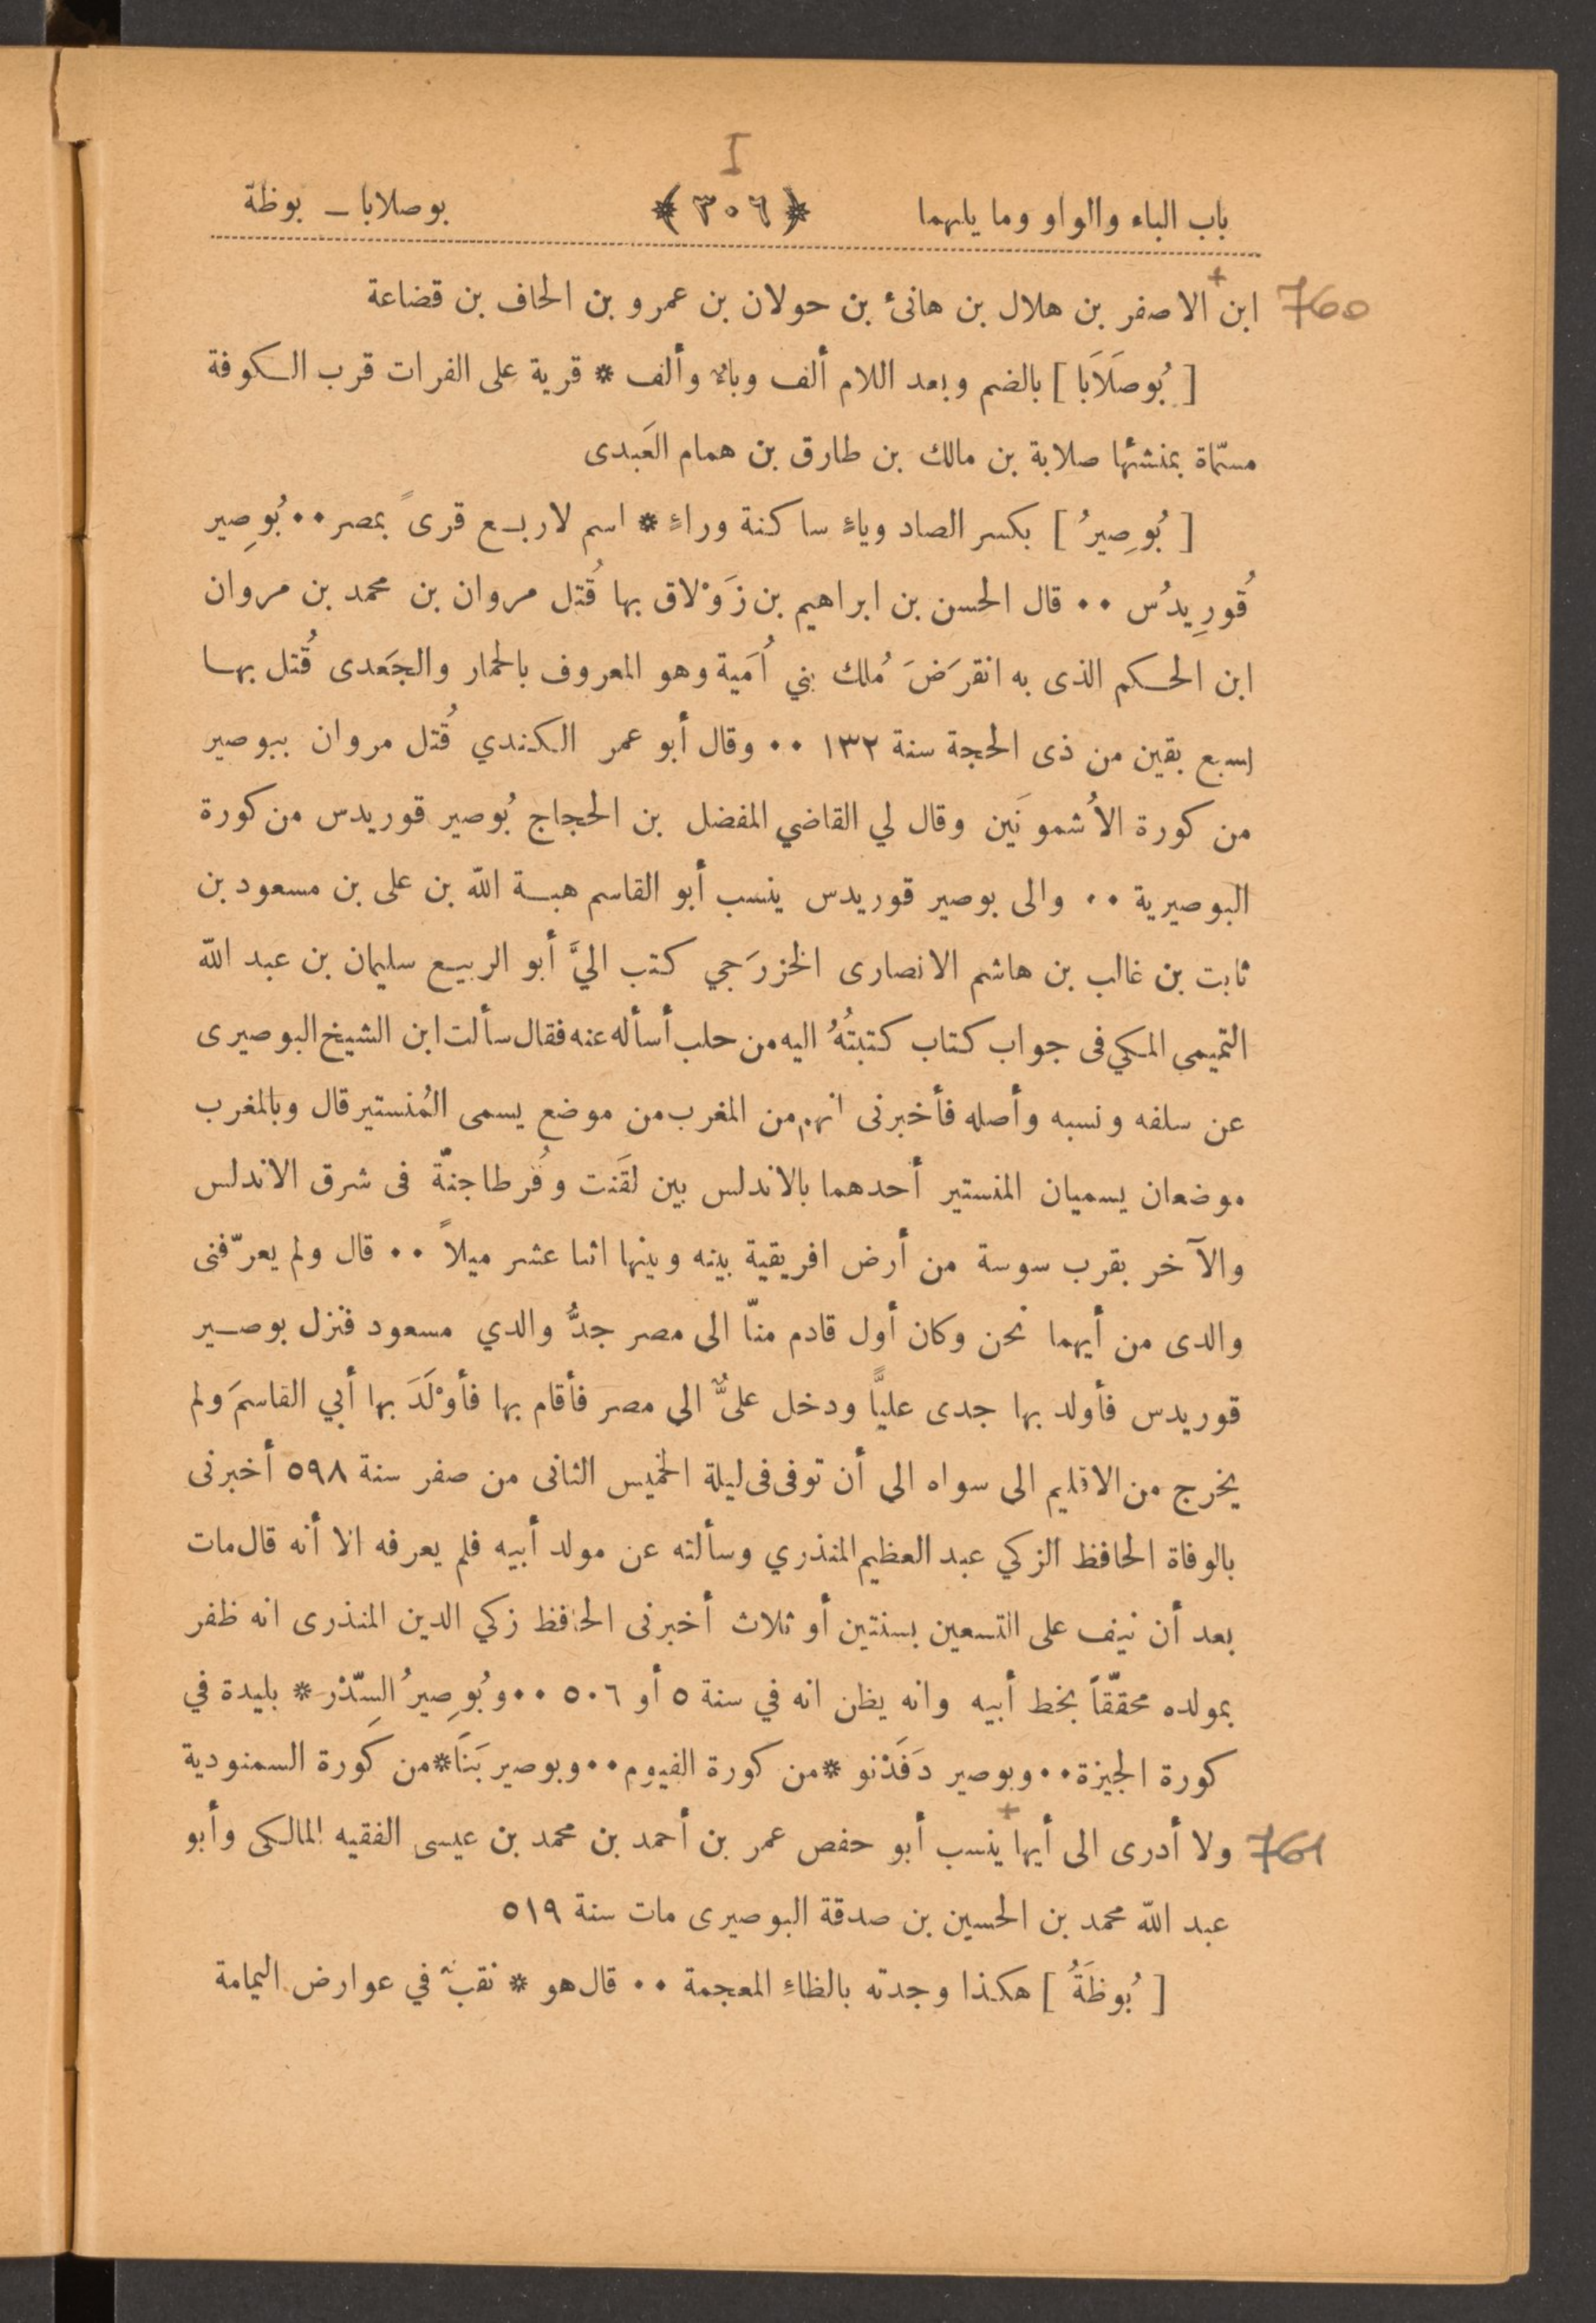 I
باب الباء والواو وما يليهما ﴿ ٣٠٦ ﴾ بوصلابا ـ بوظة
760 ابن الاصفر بن هلال بن هانئ بن حولان بن عمرو بن الحاف بن قضاعة
[ بُوصَلَابَا ] بالضم وبعد اللام ألف وباء وألف * قرية على الفرات قرب الكوفة
مسمّاة بمنشئها صلابة بن مالك بن طارق بن همام العَبدى
[ بُوصِيرُ ] بكسر الصاد وياءٍ ساكنة وراءٍ * اسم لاربع قرىً بمصر ٠٠ بُوصِير
قُورِيدُس ٠٠ قال الحسن بن ابراهيم بن زَوْلاق بها قُتل مروان بن محمد بن مروان
ابن الحكم الذى به انقرَضَ مُلك بني اُمَية وهو المعروف بالحمار والجَعدى قُتل بها
لسبع بقين من ذى الحجة سنة ١٣٢ ٠٠ وقال أبو عمر الكندي قُتل مروان ببوصير
من كورة الأشمونَين وقال لي القاضي المفضل بن الحجاج بُوصير قوريدس من كورة
البوصيرية ٠٠ والى بوصير قوريدس ينسب أبو القاسم هبة الله بن على بن مسعود بن
ثابت بن غالب بن هاشم الانصارى الخزرَجي كتب اليَّ أبو الربيع سليمان بن عبد الله
التميمى المكي فى جواب كتاب كتبتُهُ اليه من حلب أسأله عنه فقال سألت ابن الشيخ البوصيرى
عن سلفه ونسبه وأصله فأخبرنى انهم من المغرب من موضع يسمى المُنستير قال وبالمغرب
موضعان يسميان المنستير أحدهما بالاندلس بين لقَنت وقُرطاجنّة فى شرق الاندلس
والآخر بقرب سوسة من أرض افريقية بينه وبينها اثنا عشر ميلاً ٠٠ قال ولم يعرّفنى
والدى من أيهما نحن وكان أول قادم منّا الى مصر جدُّ والدي مسعود فنزل بوصير
قوريدس فأولد بها جدى عليًّا ودخل علىٌّ الى مصر فأقام بها فأوْلَدَ بها أبي القاسمَ ولم
يخرج من الاقليم الى سواه الى أن توفى فى ليلة الخميس الثانى من صفر سنة ٥٩٨ أخبرنى
بالوفاة الحافظ الزكي عبد العظيم المنذري وسألته عن مولد أبيه فلم يعرفه الا أنه قال مات
بعد أن نيف على التسعين بسنتين أو ثلاث أخبرنى الحافظ زكي الدين المنذرى انه ظفر
بمولده محققّاً بخط أبيه وانه يظن انه في سنة ٥ أو ٥٠٦ ٠٠ وبُوصِيرُ السِّدْر * بليدة في
كورة الجيزة ٠٠ وبوصير دَفَدْنو * من كورة الفيوم ٠٠ وبوصير بَنَا * من كَورة السمنودية
761 ولا أدرى الى أيها ينسب أبو حفص عمر بن أحمد بن محمد بن عيسى الفقيه المالكى وأبو
عبد الله محمد بن الحسين بن صدقة البوصيرى مات سنة ٥١٩
[ بُوظَةُ ] هكذا وجدته بالظاءِ المعجمة ٠٠ قال هو * نقبٌ في عوارض اليمامة